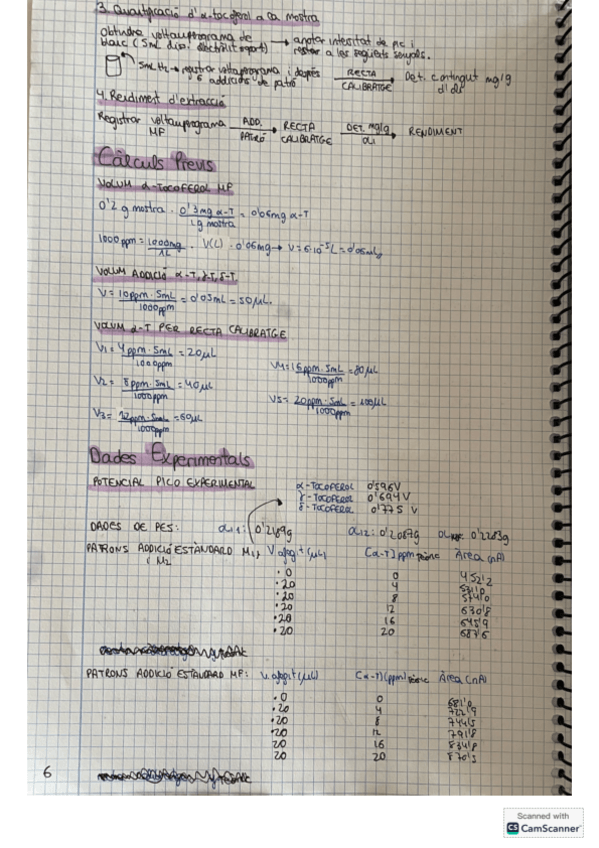 3. Quantificació d'α-tocoferol a la mostra
Obtindre voltamperograma de blanc (5mL diss. electròlit suport) → anotar intensitat de pic i restar a les següents senyals.
5mL M2 → registrar voltamperograma i després 6 addicions de patró → RECTA CALIBRATGE → Det. contingut mg/g d'oli
4. Rendiment d'extracció
Registrar voltamperograma MP → ADD. PATRÓ → RECTA CALIBRATGE → DET. mg/g oli → RENDIMENT
Càlculs Previs
VOLUM α-TOCOFEROL MP
0'2 g mostra · 0'3mg α-T / 1g mostra = 0'06mg α-T
1000ppm = 1000mg / 1L · V(L) · 0'06mg → V = 6·10⁻⁵ L = 0'06mL
VOLUM ADDICIÓ α-T, γ-T, δ-T
V = 10ppm · 5mL / 1000ppm = 0'05mL = 50μL.
VOLUM α-T PER RECTA CALIBRATGE
V1 = 4ppm · 5mL / 1000ppm = 20μL
V4 = 16ppm · 5mL / 1000ppm = 80μL
V2 = 8ppm · 5mL / 1000ppm = 40μL
V5 = 20ppm · 5mL / 1000ppm = 100μL
V3 = 12ppm · 5mL / 1000ppm = 60μL
Dades Experimentals
POTENCIAL PICO EXPERIMENTAL
α-TOCOFEROL 0'596V
γ-TOCOFEROL 0'694V
δ-TOCOFEROL 0'775 V
DADES DE PES: oli1: 0'2189g oli2: 0'2087g 0'2283g
PATRONS ADDICIÓ ESTÀNDARD M1 i M2
V afegit (μL) [α-T] ppm Àrea (nA)
· 0 0 452'2
· 20 4
· 20 8 574'0
· 20 12 630'8
· 20 16 645'9
· 20 20 687'6
PATRONS ADDICIÓ ESTÀNDARD MP: V afegit (μL) [α-T] (ppm) Àrea (nA)
· 0 0 681'0
· 20 4 722'9
· 20 8 744'5
· 20 12 791'8
20 16 834'8
20 20 870'5
6
Scanned with
CS CamScanner